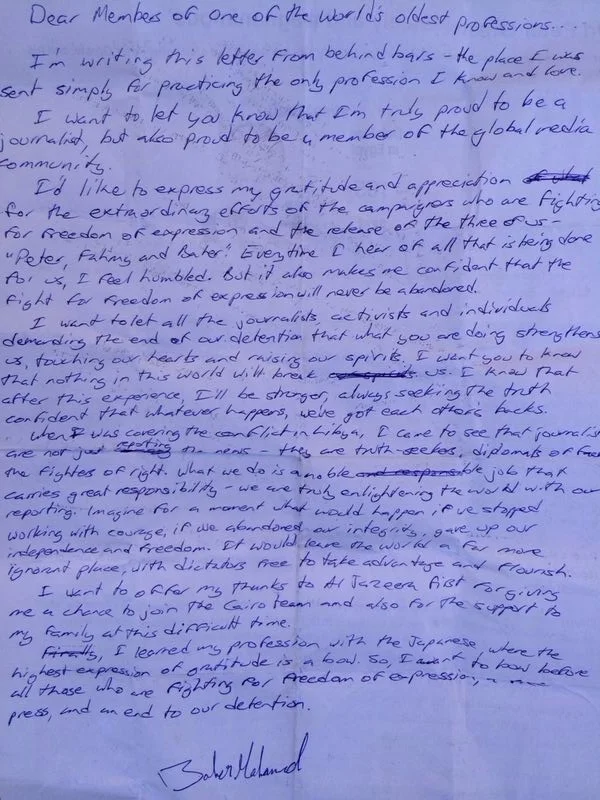 Dear Members of one of the world's oldest professions....
I'm writing this letter from behind bars - the place I was
sent simply for practicing the only profession I know and love.
I want to let you know that I'm truly proud to be a
journalist, but also proud to be a member of the global media
community.
I'd like to express my gratitude and appreciation
for the extraordinary efforts of the campaigners who are fighting
for freedom of expression and the release of the three of us -
"Peter, Fahmy and Baher". Everytime I hear of all that is being done
for us, I feel humbled. But it also makes me confident that the
fight for freedom of expression will never be abandoned.
I want to let all the journalists, activists and individuals
demanding the end of our detention that what you are doing strengthens
us, touching our hearts and raising our spirits. I want you to know
that nothing in this world will break us. I know that
after this experience, I'll be stronger, always seeking the truth
confident that whatever happens, we've got each other's backs.
When I was covering the conflict in Libya, I came to see that journalist
are not just reporting the news - they are truth-seekers, diplomats of
the fighters of right. What we do is a noble and responsible job that
carries great responsibility - we are truly enlightening the world with our
reporting. Imagine for a moment what would happen if we stopped
working with courage, if we abandoned our integrity, gave up our
independence and freedom. It would leave the world a far more
ignorant place, with dictators free to take advantage and flourish.
I want to offer my thanks to Al Jazeera first for giving
me a chance to join the Cairo team and also for the support to
my family at this difficult time.
Finally, I learned my profession with the Japanese where the
highest expression of gratitude is a bow. So, I want to bow before
all those who are fighting for freedom of expression, a
press, and an end to our detention.
Baher Mohamed